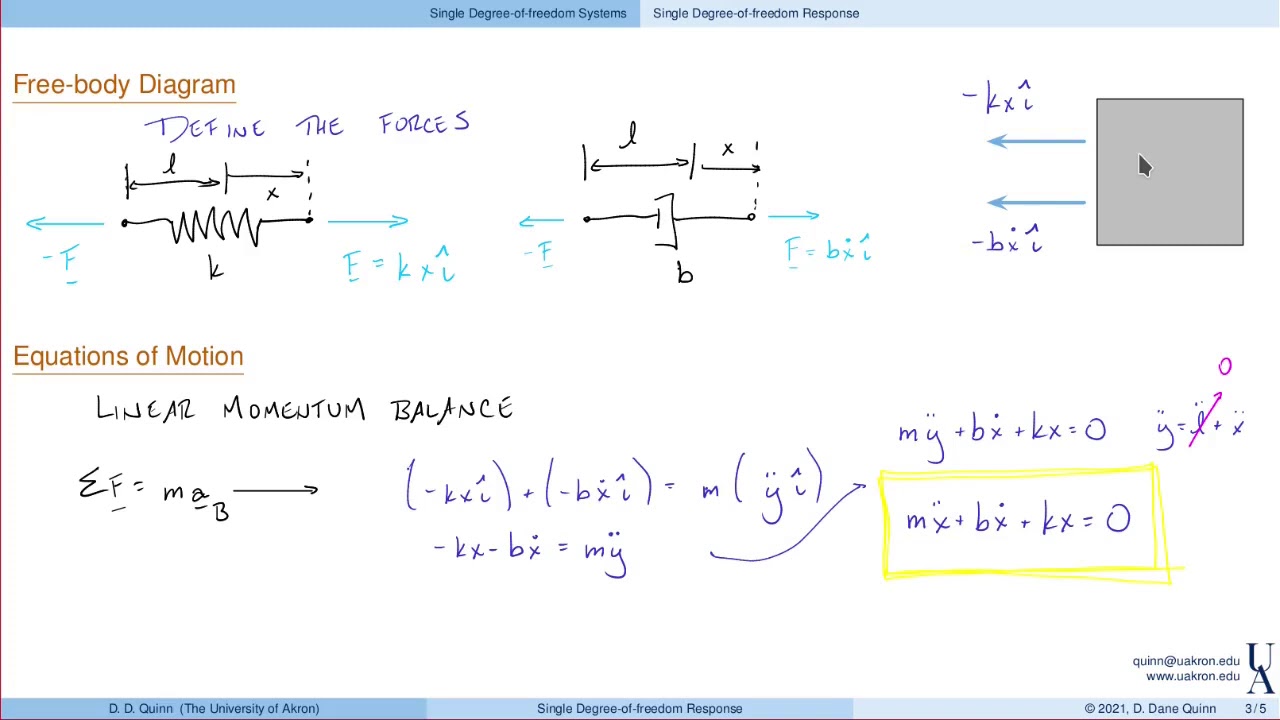 Single Degree-of-freedom Systems Single Degree-of-freedom Response
Free-body Diagram
DEFINE THE FORCES
l x
k
-F F = kxî
l x
b
-F F = bẋî
-kxî
-bẋî
Equations of Motion
LINEAR MOMENTUM BALANCE
ΣF = ma_B
(-kxî) + (-bẋî) = m(ÿî)
-kx - bẋ = mÿ
mÿ + bẋ + kx = 0
0
ÿ = l̈ + ẍ
mẍ + bẋ + kx = 0
quinn@uakron.edu
www.uakron.edu
UA
D. D. Quinn (The University of Akron) Single Degree-of-freedom Response © 2021, D. Dane Quinn 3 / 5